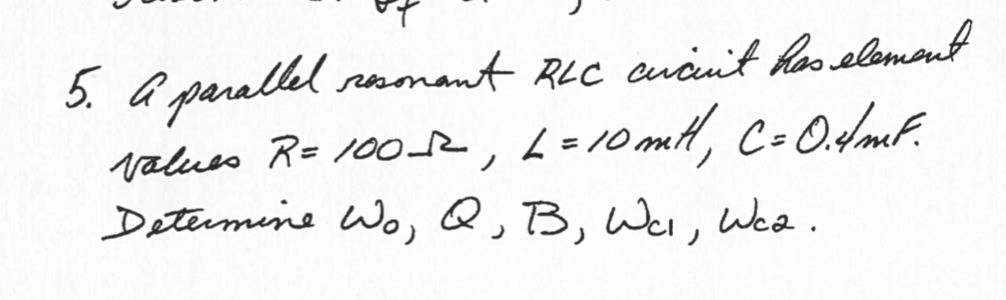 5. A parallel resonant RLC circuit has element
values R = 100 Ω, L = 10 mH, C = 0.4 mF.
Determine ω₀, Q, B, ωc1, ωc2.